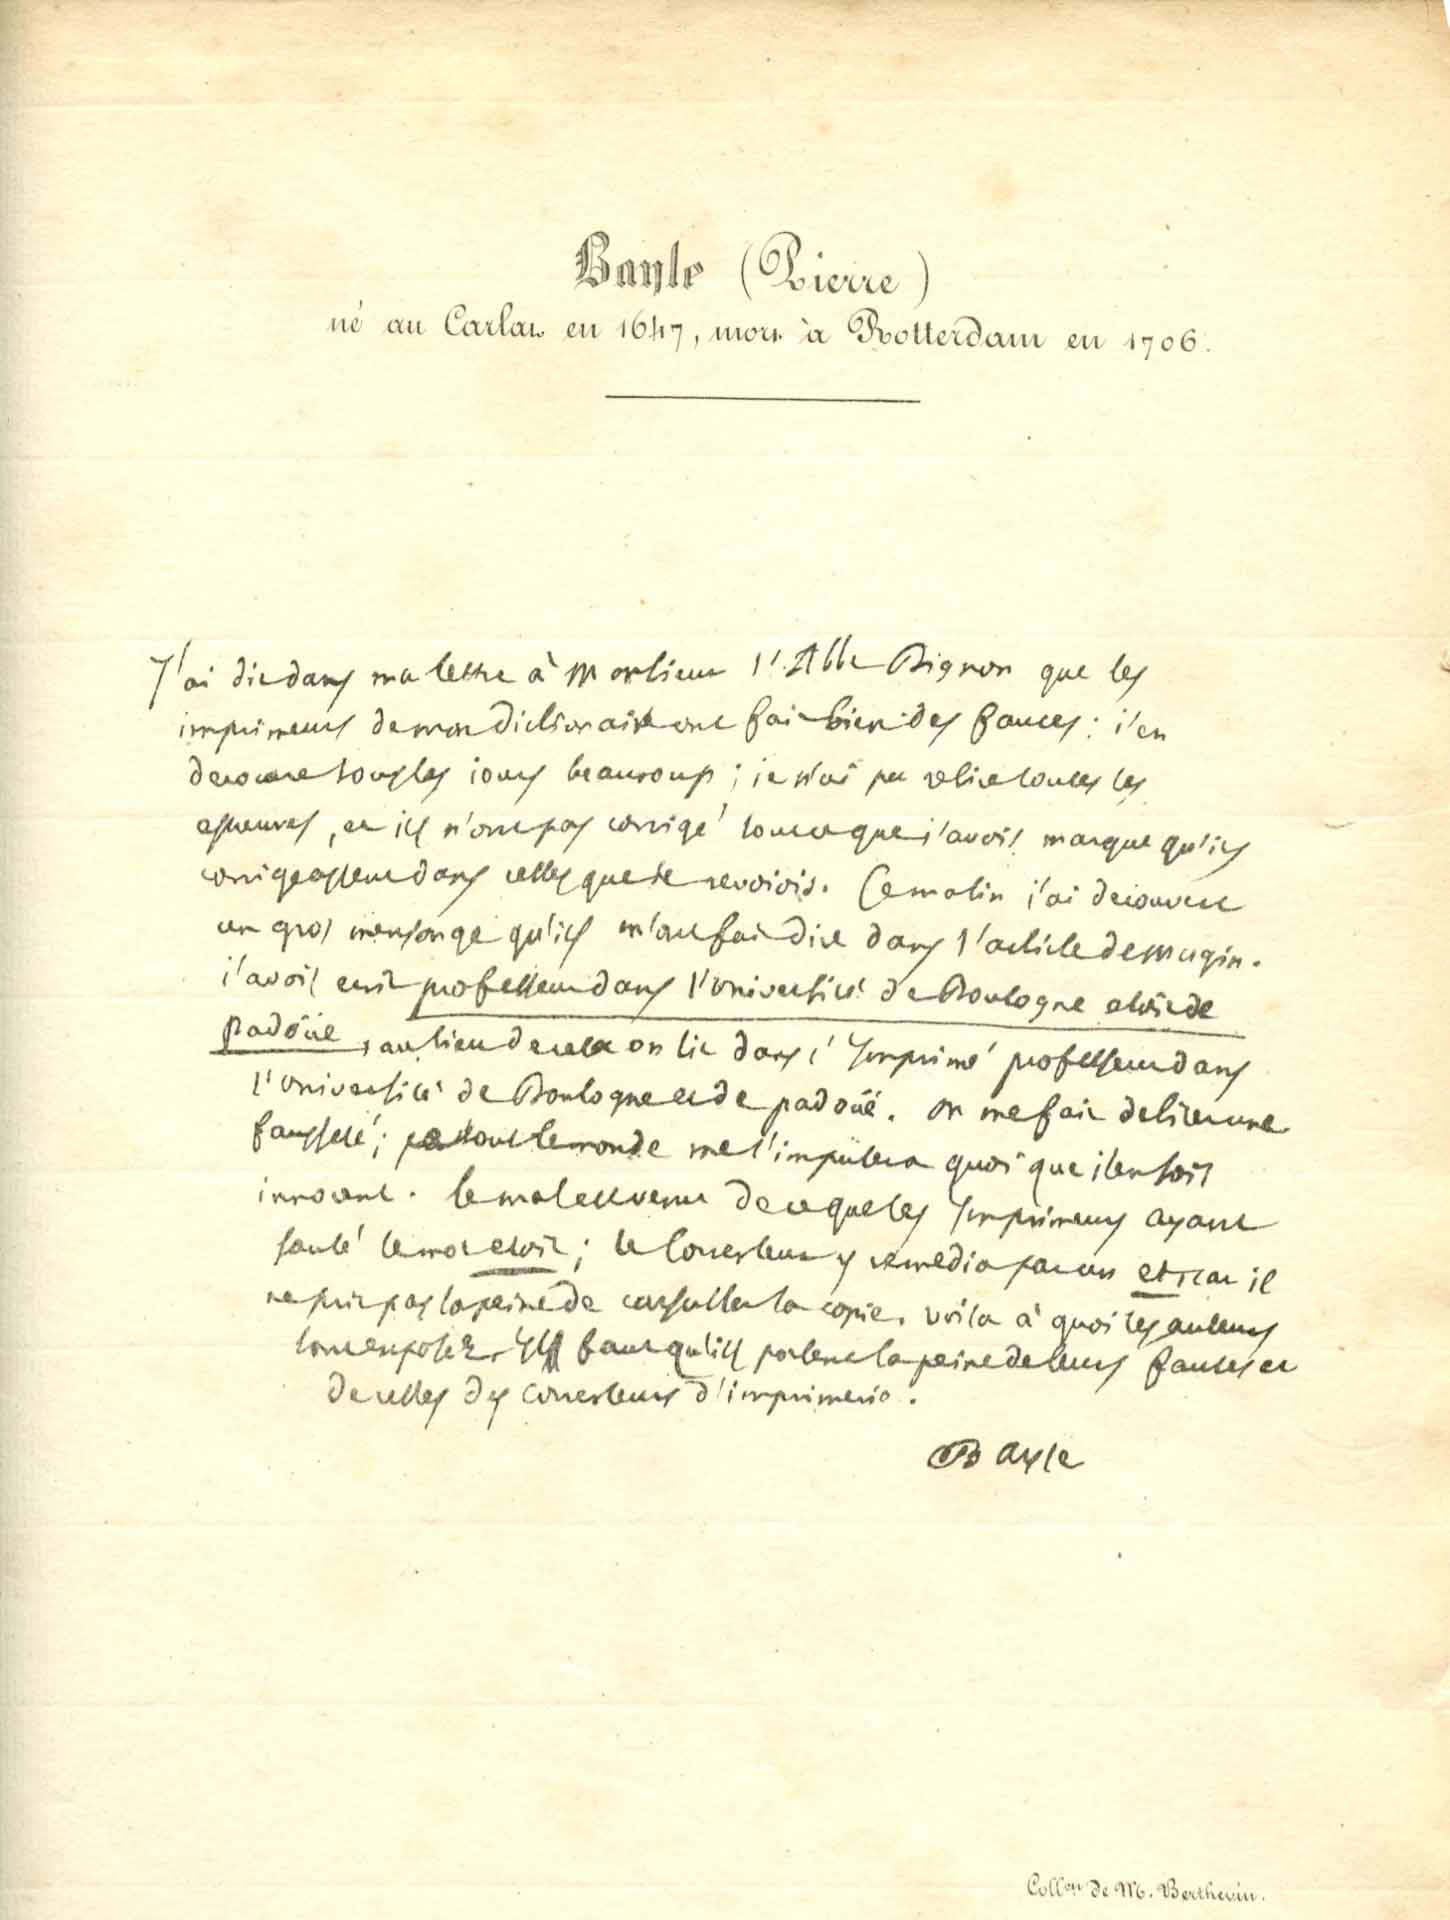 Bayle (Pierre)
né au Carlat en 1647, mort à Rotterdam en 1706.
J'ai dit dans ma lettre à Monsieur l'Abbé Bignon que les
imprimeurs de mon dictionaire ont fait bien des fautes : j'en
decouvre tous les jours beaucoup ; je n'ai pu relire toutes les
epreuves, et ils n'ont pas corrigé tout ce que j'avois marqué qu'ils
corrigeassent dans celles que je revoiois. Ce matin j'ai decouvert
un gros mensonge qu'ils m'ont fait dire dans l'article de Magin.
j'avois ecrit professeur dans l'université de Boulogne et
padoüe, au lieu de cela on lit dans l'Imprimé professeur dans
l'université de Boulogne et de padoüe. on me fait debiter une
fausseté ; tout le monde me l'imputera quoi que j'en sois
innocent. le mal est venu de ce que les Imprimeurs ayant
sauté le mot ; le Correcteur y remedia par un et, car il
ne prit pas la peine de consulter la copie. voila à quoi les auteurs
sont exposez. Il faut qu'ils portent la peine de leurs fautes et
de celles des Correcteurs d'imprimerie.
Bayle
Collon de M. Berthevin.